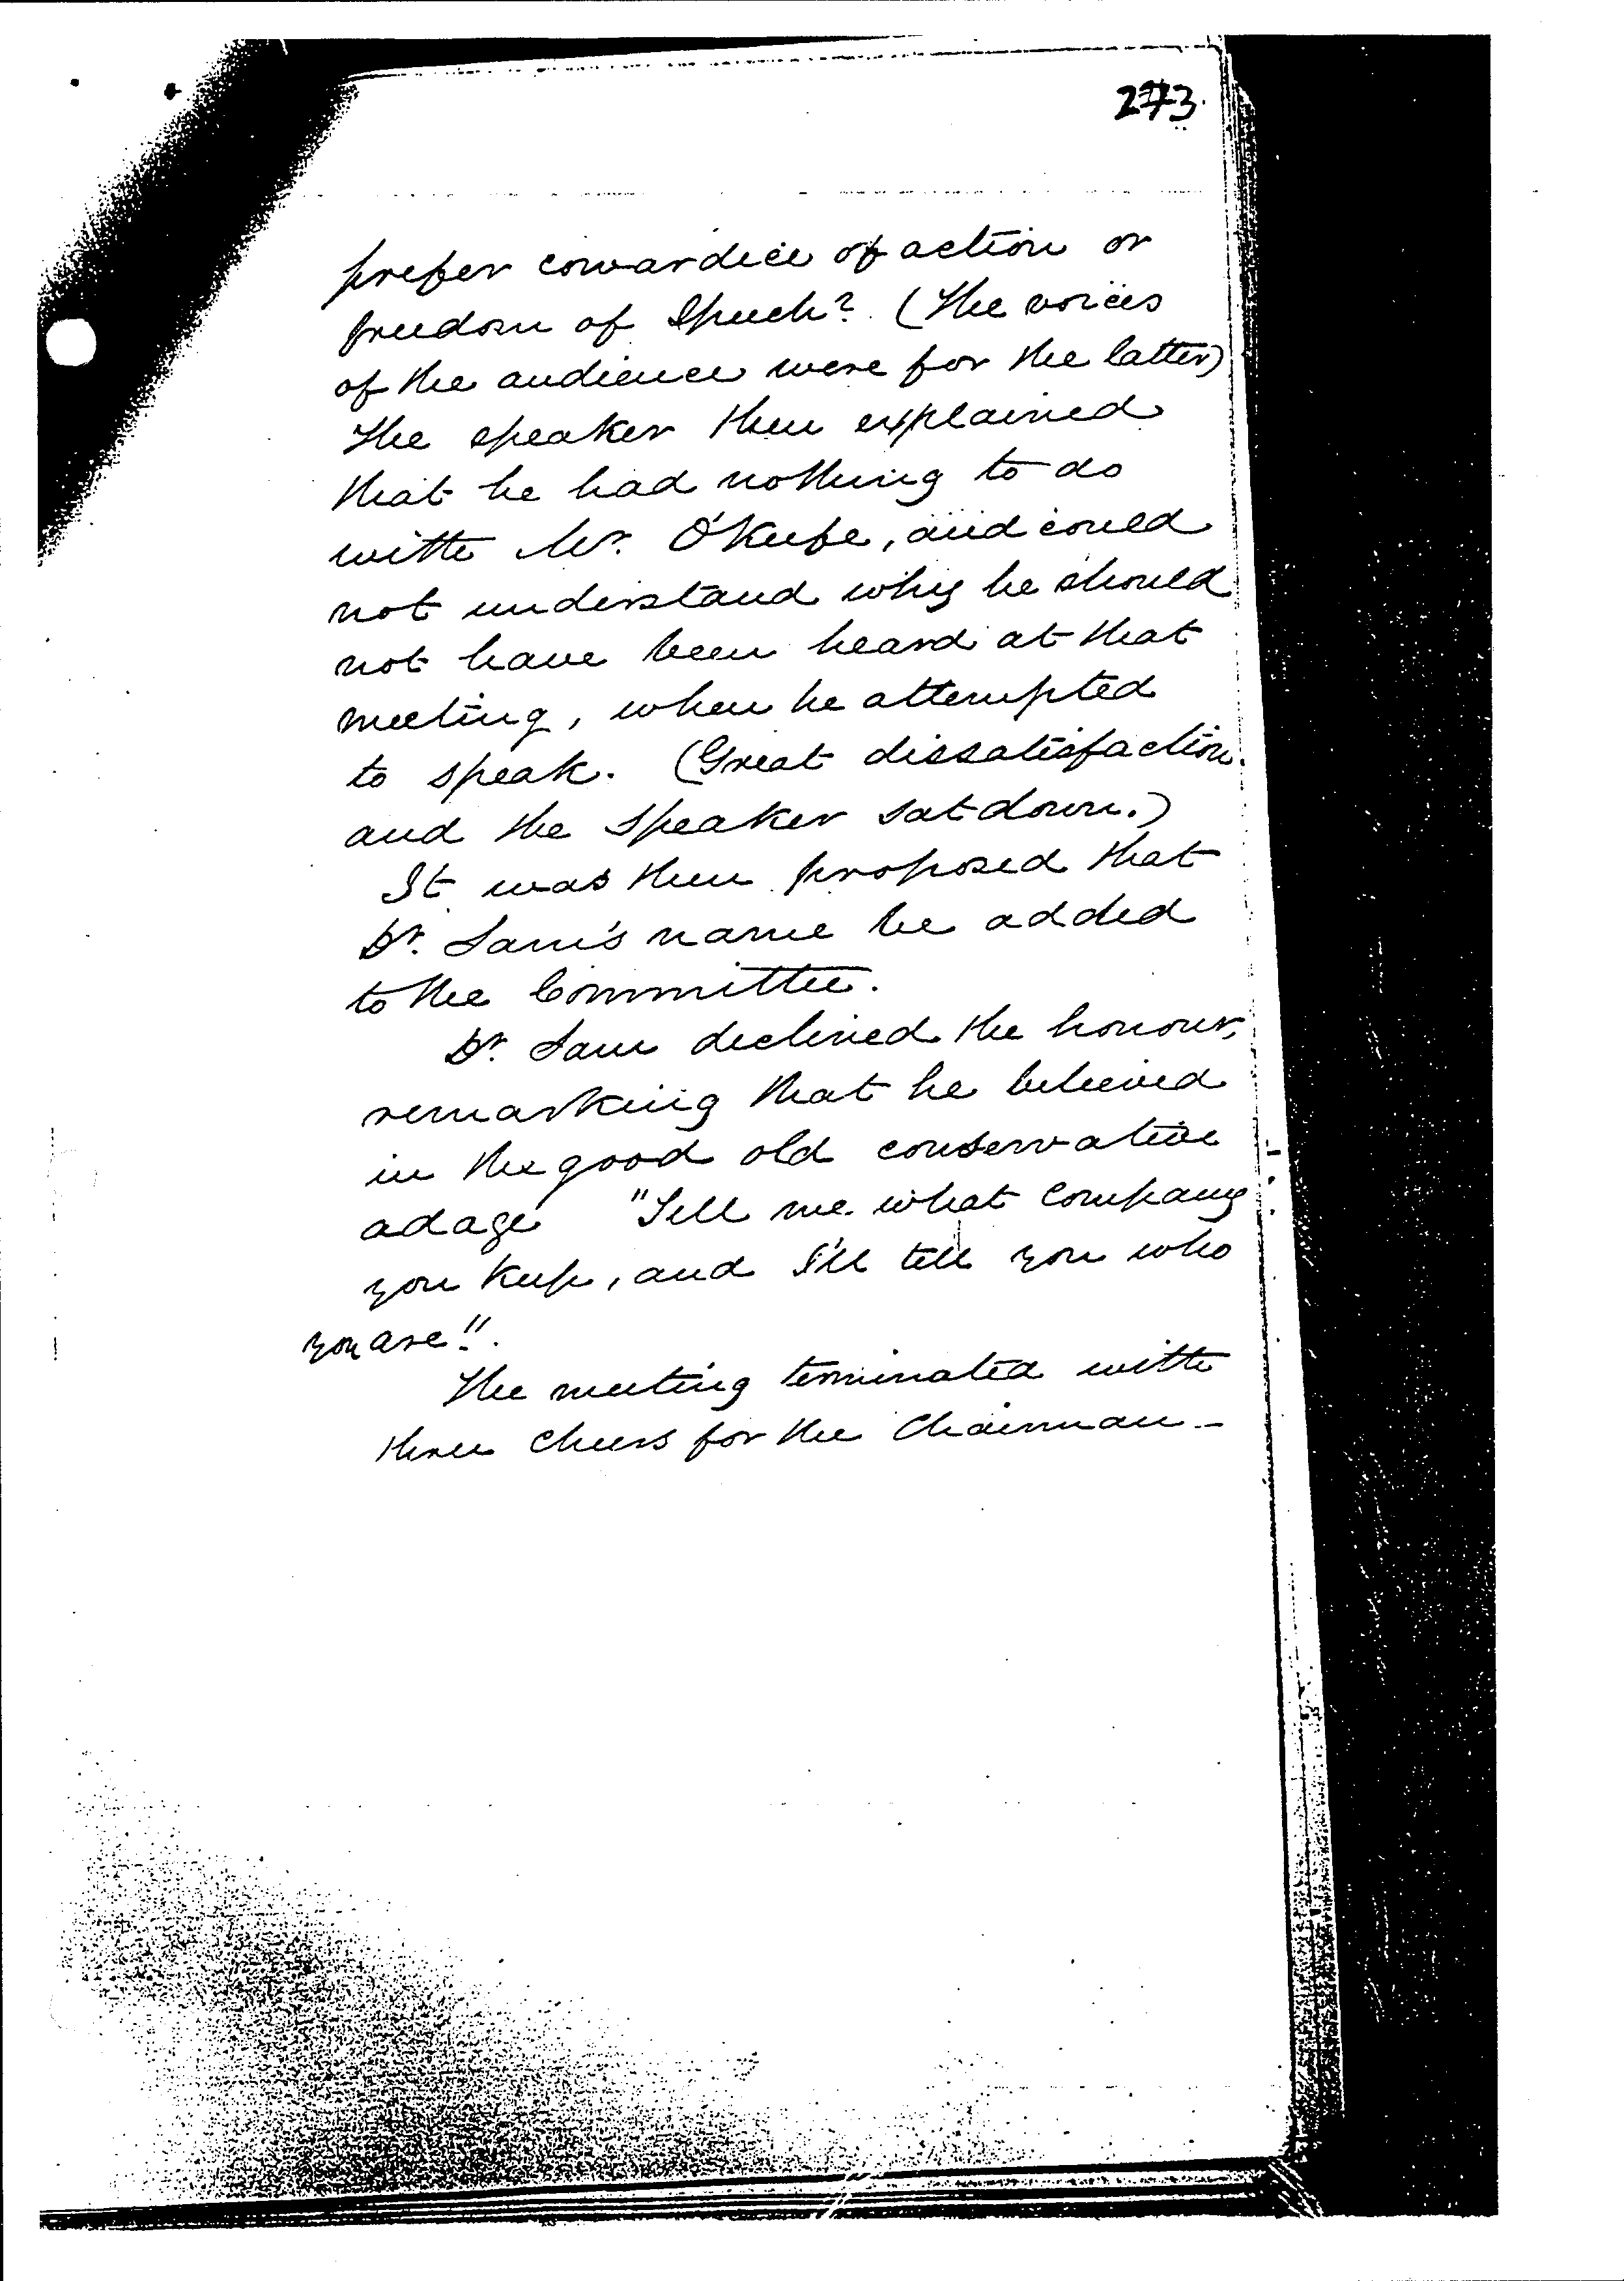 273.
prefer cowardice of action or
freedom of Speech? (The voices
of the audience were for the latter)
The speaker then explained
that he had nothing to do
with Mr. O'Keefe, and could
not understand why he should
not have been heard at that
meeting, when he attempted
to speak. (Great dissatisfaction
and the speaker sat down.)
It was then proposed that
Dr. Lam's name be added
to the Committee.
Dr. Lam declined the honour,
remarking that he believed
in the good old conservative
adage "Tell me what Company
you keep, and I'll tell you who
you are!".
The meeting terminated with
three cheers for the Chairman -